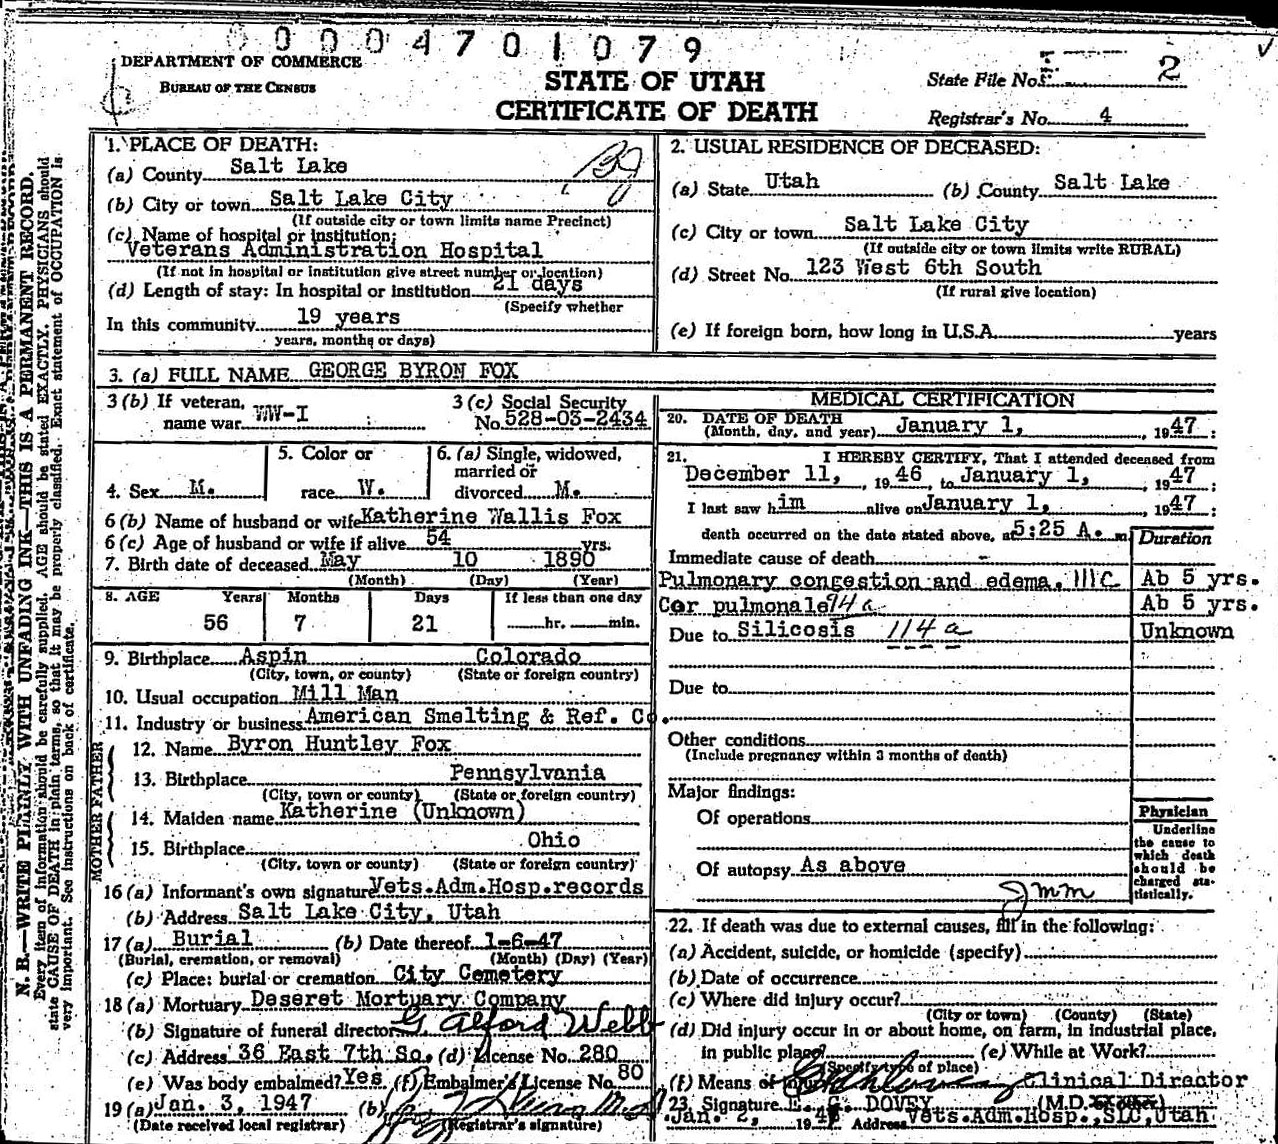 0 0 0 0 4 7 0 1 0 7 9
DEPARTMENT OF COMMERCE
BUREAU OF THE CENSUS
STATE OF UTAH
CERTIFICATE OF DEATH
State File No. 2
Registrar's No. 4
N. B.—WRITE PLAINLY WITH UNFADING INK—THIS IS A PERMANENT RECORD.
Every item of information should be carefully supplied. AGE should be stated EXACTLY. PHYSICIANS should
state CAUSE OF DEATH in plain terms, so that it may be properly classified. Exact statement of OCCUPATION is
very important. See instructions on back of certificate.
1. PLACE OF DEATH:
(a) County Salt Lake
(b) City or town Salt Lake City
(If outside city or town limits name Precinct)
(c) Name of hospital or institution:
Veterans Administration Hospital
(If not in hospital or institution give street number or location)
(d) Length of stay: In hospital or institution 21 days
(Specify whether
In this community 19 years
years, months or days)
2. USUAL RESIDENCE OF DECEASED:
(a) State Utah (b) County Salt Lake
(c) City or town Salt Lake City
(If outside city or town limits write RURAL)
(d) Street No. 123 West 6th South
(If rural give location)
(e) If foreign born, how long in U.S.A. years
3. (a) FULL NAME GEORGE BYRON FOX
3 (b) If veteran, name war WW-I
3 (c) Social Security No. 528-03-2434
4. Sex M.
5. Color or race W.
6. (a) Single, widowed, married or divorced M.
6 (b) Name of husband or wife Katherine Wallis Fox
6 (c) Age of husband or wife if alive 54 yrs.
7. Birth date of deceased May 10 1890
(Month) (Day) (Year)
8. AGE Years Months Days If less than one day
56 7 21 hr. min.
9. Birthplace Aspin Colorado
(City, town, or county) (State or foreign country)
10. Usual occupation Mill Man
11. Industry or business American Smelting & Ref. Co.
FATHER
12. Name Byron Huntley Fox
13. Birthplace Pennsylvania
(City, town or county) (State or foreign country)
MOTHER
14. Maiden name Katherine (Unknown)
15. Birthplace Ohio
(City, town or county) (State or foreign country)
16 (a) Informant's own signature Vets.Adm.Hosp.records
(b) Address Salt Lake City, Utah
17 (a) Burial (b) Date thereof 1-6-47
(Burial, cremation, or removal) (Month) (Day) (Year)
(c) Place: burial or cremation City Cemetery
18 (a) Mortuary Deseret Mortuary Company
(b) Signature of funeral director G Alford Webb
(c) Address 36 East 7th So. (d) License No. 280
(e) Was body embalmed? Yes (f) Embalmer's License No. 80
19 (a) Jan. 3, 1947 (b)
(Date received local registrar) (Registrar's signature)
MEDICAL CERTIFICATION
20. DATE OF DEATH
(Month, day, and year) January 1, , 1947 ;
21. I HEREBY CERTIFY, That I attended deceased from
December 11, , 1946 , to January 1, , 1947 ;
I last saw him alive on January 1, , 1947 ;
death occurred on the date stated above, at 5:25 A. m.
Duration
Immediate cause of death
Pulmonary congestion and edema. 111C Ab 5 yrs.
Cor pulmonale 94a Ab 5 yrs.
Due to Silicosis 114a Unknown
Due to
Other conditions
(Include pregnancy within 3 months of death)
Major findings:
Of operations
Of autopsy As above
Jmm
Physician
Underline
the cause to
which death
should be
charged sta-
tistically.
22. If death was due to external causes, fill in the following:
(a) Accident, suicide, or homicide (specify)
(b) Date of occurrence
(c) Where did injury occur?
(City or town) (County) (State)
(d) Did injury occur in or about home, on farm, in industrial place,
in public place? (e) While at Work?
(Specify type of place)
(f) Means of injury Clinical Director
23. Signature E. G. DOVEY (M.D.
Jan. 2, 194 Address Vets.Adm.Hosp.,SLC,Utah